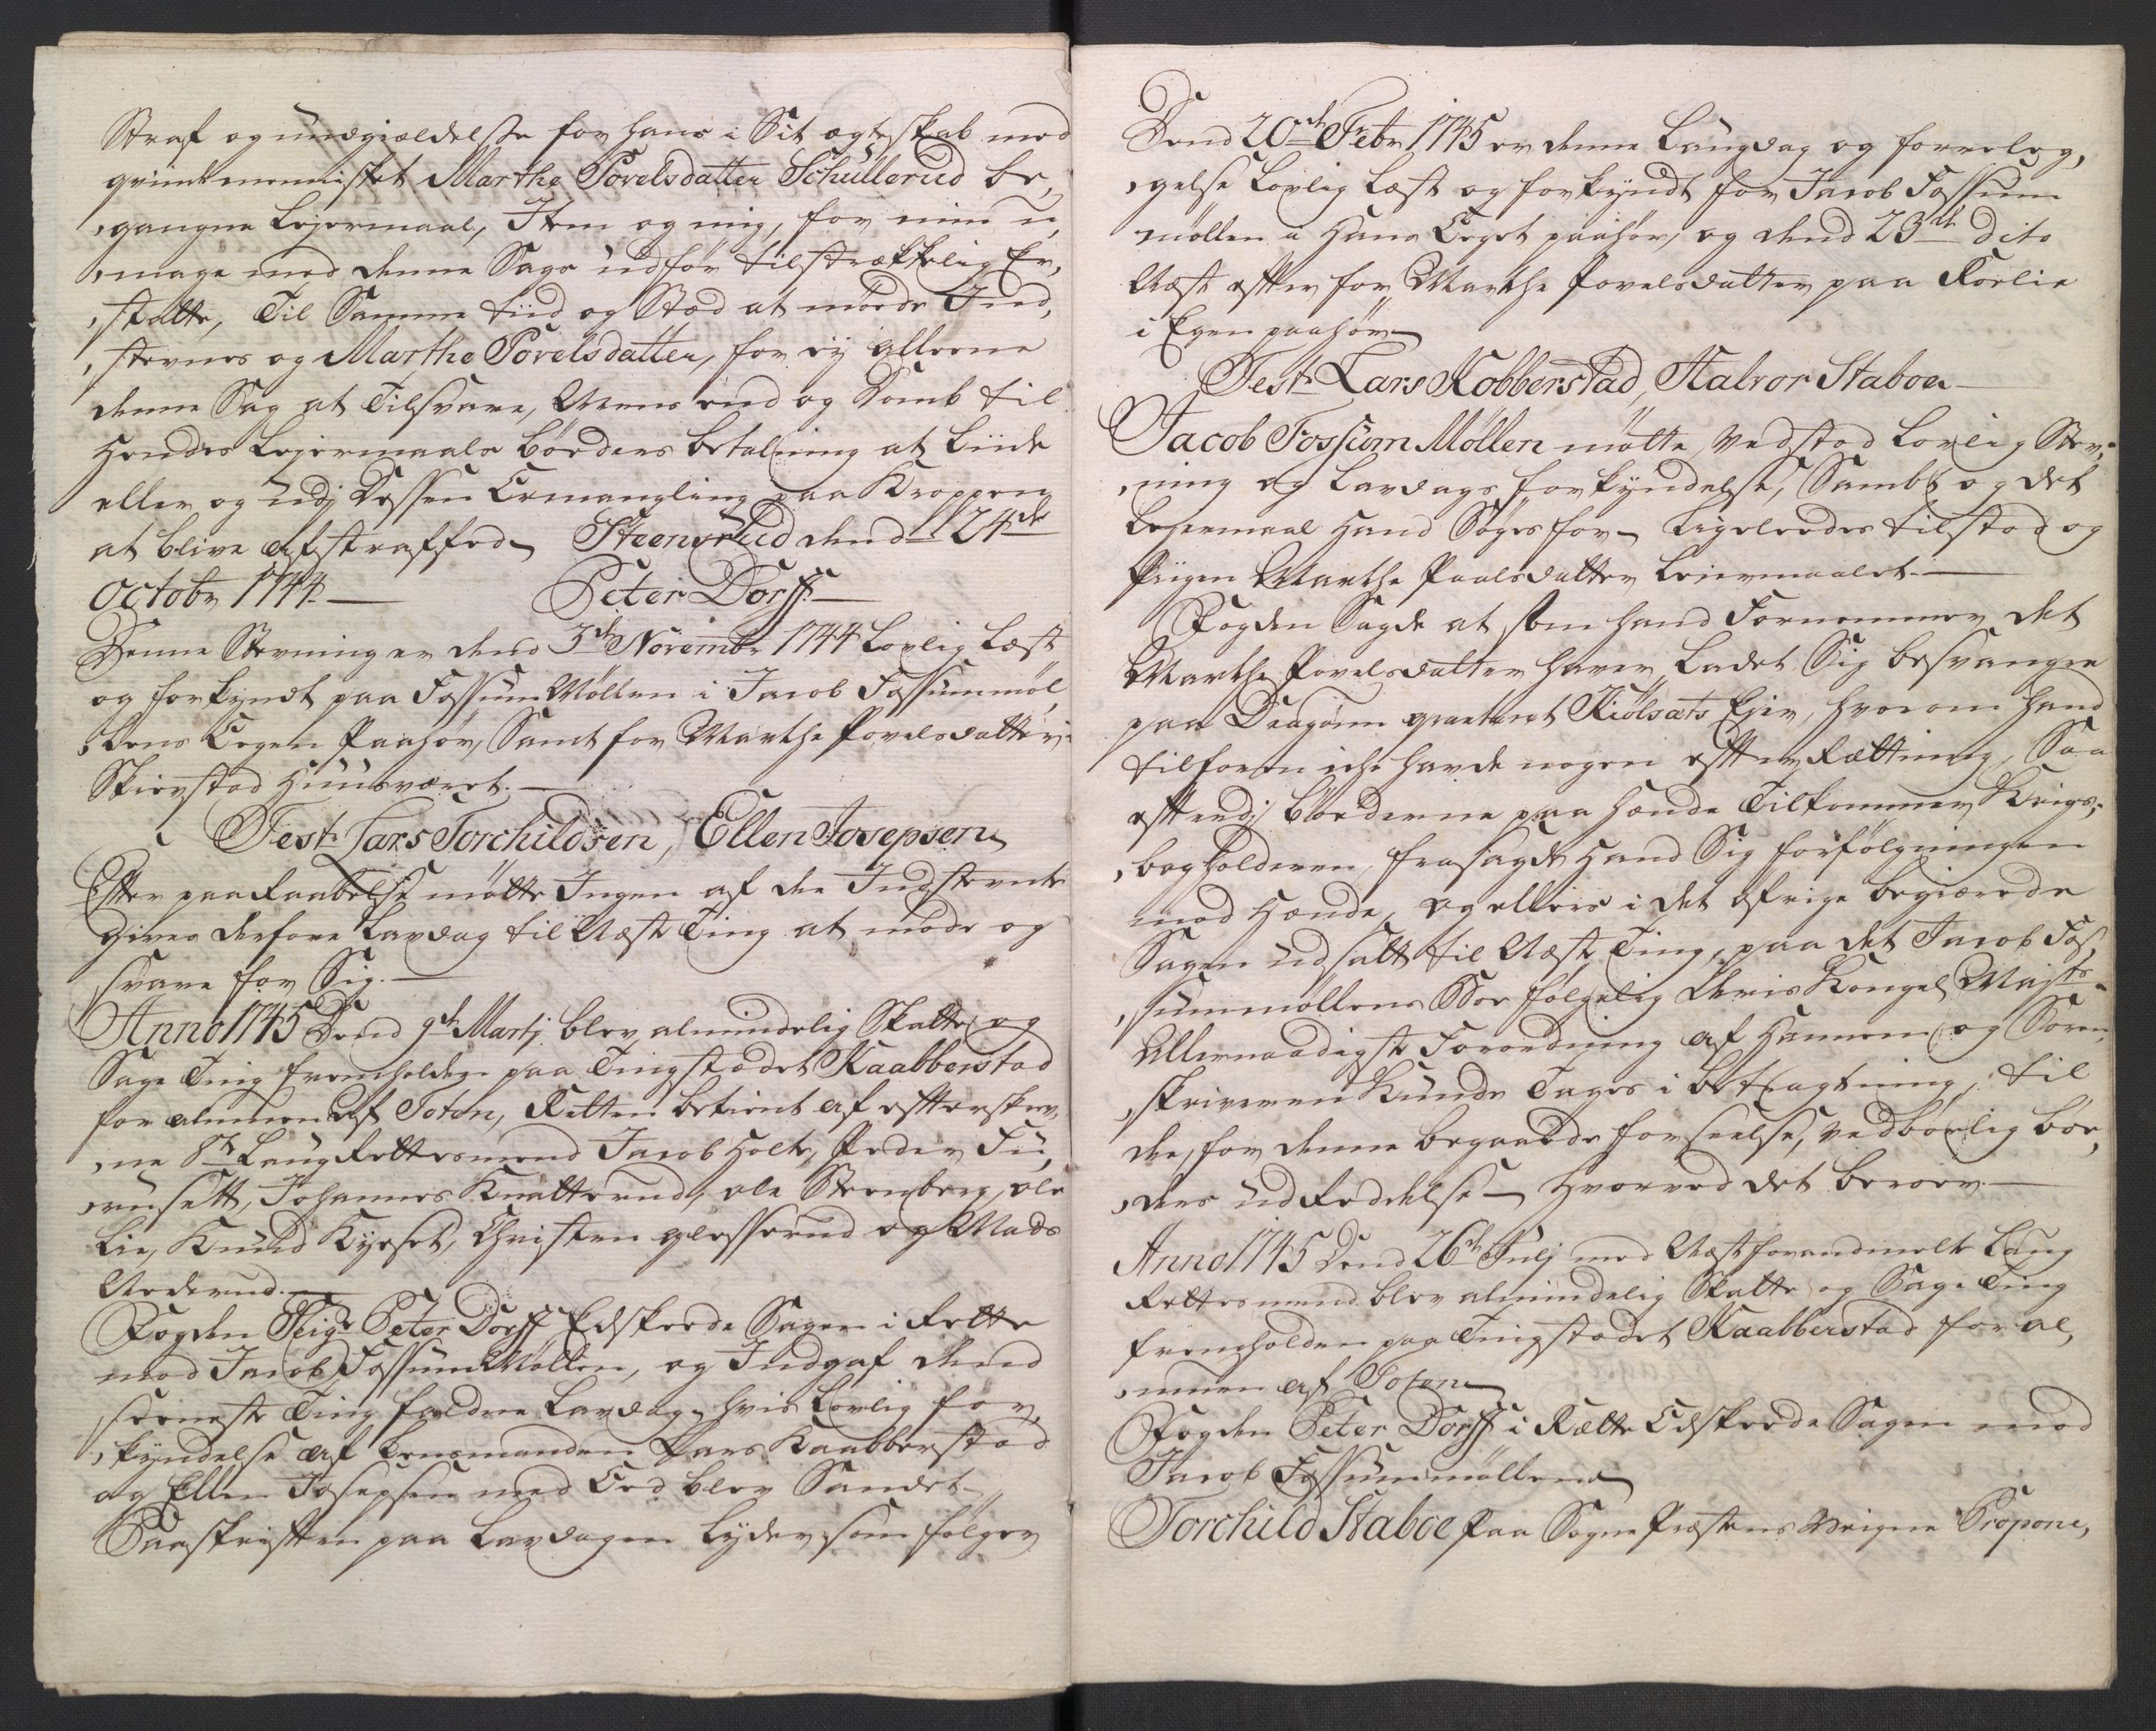 Straf og undgiældelse for hans i Sit ægteskab med
qvindemennisket Marthe Povelsdatter Schullerud be,
,gangne Lejermaal, Item og mig, for min u,
,mage med denne Sags udfør tilstrækkelig Er,
,statte, Til Samme tiid og Stæd at møde Ind,
,stevnes og Marthe Povelsdatter, for ey alleene
denne Sag at Tilsvare, Mens end og Domb til
hendes Lejermaals bøders betalning at Liide
eller og udj Dessen Ermangling paa Kroppen
at blive afstraffed. Steensrud dend 24de
Octobr 1744. Peter Dorff.
Denne Stevning er dend 3de Novembr 1744 Lovlig Læst
og forkyndt paa Fossum Møllen i Jacob Fossummøl,
,lens Eegen Paahør, Samt for Marthe Povelsdatter i
Skierstad Huusværet.
Test. Lars Torchildsen, Ellen Josepsen
Efter paaRaabelse mødte Ingen af de Indstevnte
gives derfore Lavdag til Næste Ting at møde og
svare for Sig.
Anno 1745 Dend 9de Martj blev almindelig Skatte og
Sage Ting fremholden paa Tingstædet Kaabberstad
for almuen af Toten, Retten betient af efterskrev,
,ne 8te LaugRettesmend Jacob Holte, Peder Fu,
,rusett, Johannes Knatterud, ole Steenberg, ole
Lie, Knud Kyset, Christen glesserud og Mads
Nederud.
Fogden Seigr Peter Dorff Edskede Sagen i Rette
mod Jacob Fossum Møllen, og Indgaf dend
seeneste Ting faldne Lavdag, hvis Lovlig for,
,kyndelse af Lensmanden Lars Kaabberstad
og Ellen Josepsen med Eed blev Sandet.
Paaskriften paa Lavdagen Lyder som følger
Dend 20de Febr 1745 er denne Laugdag og forreleg,
,gelse Lovlig Læst og forkyndt for Jacob Fossum
møllen i Hans Eeget paahør, og dend 23de dito
Næst efter for Marthe Povelsdatter paa Forlie
i Egen paahør
Test. Lars Kobberstad, Halvor Staboe
Jacob Fossum Møllen mødte vedstod Lovlig Stev,
,ning og Lavdags forkyndelse, Sambt og det
Lejermaal Hand Søges for, ligeleedes tilstod og
Piigen Marthe Paalsdatter Leiermaalet.
Fogden Sagde at som hand Fornemmer det
Marthe Povelsdatter haver Ladet Sig besvangre
paa Dragoun qvarteret Kiølsæts Ejer, hvorom hand
tilforn iche havde nogen efterRættning, Saa
eftterdj bøderne paa hende Tilkommer Krigs,
,bogholderen, frasagde Hand Sig forfølgningen
mod Hende, og ellers i det øfrige begiærede
Sagen udsatt til Næste Ting, paa det Jacob Fos,
,summøllens Boe følgelig Deris Kongel. Majts
Allernaadigste Forordning af Hannem og Soren,
,skriveren kunde Tages i betragtning, til
de, for denne begaaede forseelse, vedbørlig bø,
,ders udReddelse. Hvorved det beroer.
Anno 1745 Dend 26de Julj med Næstforanmelte Laug
Rettesmend blev almindelig Skatte og Sage Ting
fremholden paa Tingstædet Kaabberstad for al,
,muen af Toten
Fogden Peter Dorff i Rette Edskede Sagen mod
Jacob Fossummøllen
Torchild Staboe Paa SognePræstens Veigne Propone,